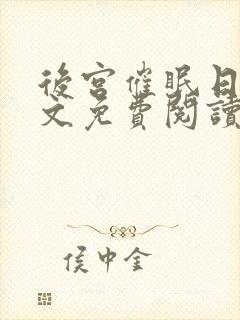 後宮催眠日
文免費閱讀
侯中金